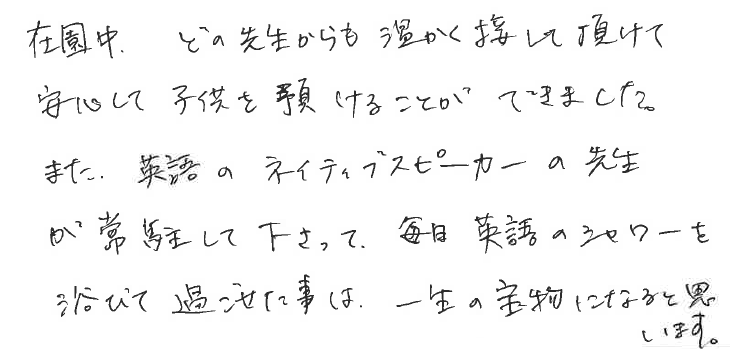 在園中、どの先生からも温かく接して頂けて
安心して子供を預けることができました。
また、英語のネイティブスピーカーの先生
が常駐して下さって、毎日英語のシャワーを
浴びて過ごせた事は、一生の宝物になると思
います。